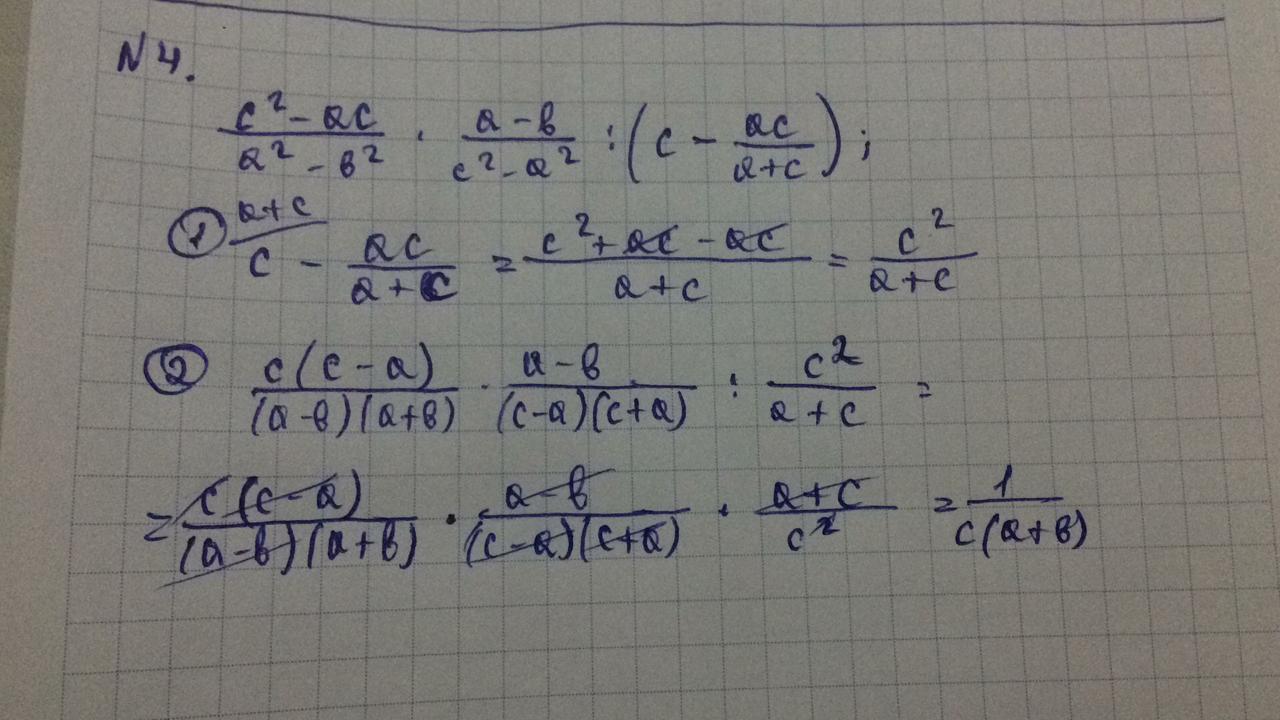 N 4.
(c² - ac)/(a² - в²) · (a - в)/(c² - a²) : (c - ac/(a+c));
① a+c/ c - ac/(a+c) = (c² + ac - ac)/(a+c) = c²/(a+c)
② c(c - a)/((a-в)(a+в)) · (a-в)/((c-a)(c+a)) : c²/(a+c) =
= c(c-a)/((a-в)(a+в)) · (a-в)/((c-a)(c+a)) · (a+c)/c² = 1/(c(a+в))